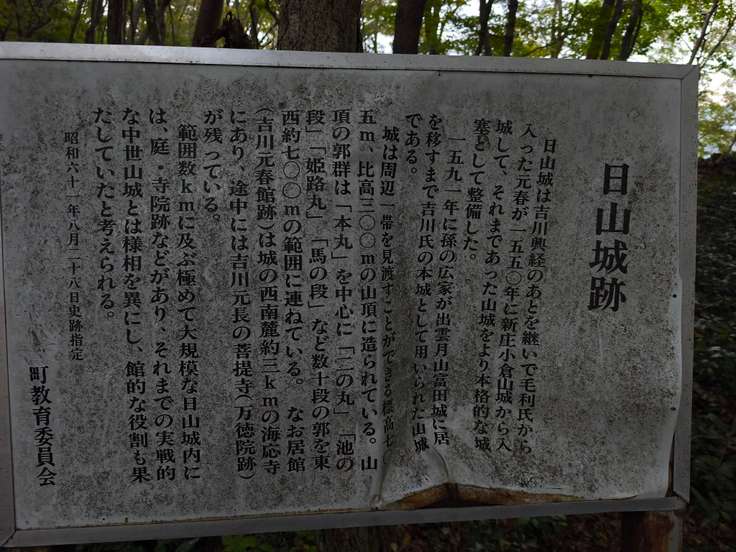 日山城跡
日山城は吉川興経のあとを継いで毛利氏から
入った元春が一五五〇年に新庄小倉山城から入
城して、それまであった山城をより本格的な城
塞として整備した。
一五九一年に孫の広家が出雲月山富田城に居
を移すまで吉川氏の本城として用いられた山城
である。
城は周辺一帯を見渡すことができる標高七
五ｍ、比高三〇〇ｍの山頂に造られている。山
頂の郭群は「本丸」を中心に「二の丸」「池の
段」「姫路丸」「馬の段」など数十段の郭を東
西約七〇〇ｍの範囲に連ねている。なお居館
（吉川元春館跡）は城の西南麓約三ｋｍの海応寺
にあり、途中には吉川元長の菩提寺（万徳院跡）
が残っている。
範囲数ｋｍに及ぶ極めて大規模な日山城内に
は、庭、寺院跡などがあり、それまでの実戦的
な中世山城とは様相を異にし、館的な役割も果
たしていたと考えられる。
昭和六十一年八月二十八日史跡指定
町教育委員会